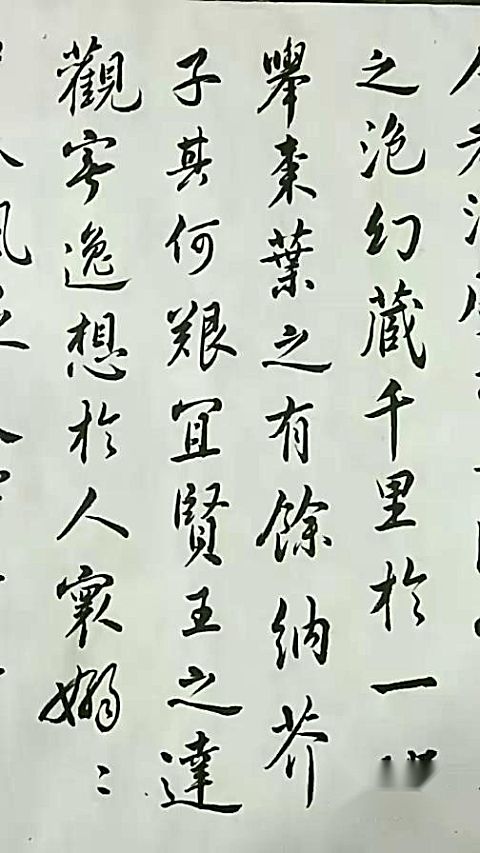 之泡幻藏千里於一
舉棗葉之有餘納芥
子其何艱宜賢王之達
觀寄逸想於人寰嫋〻